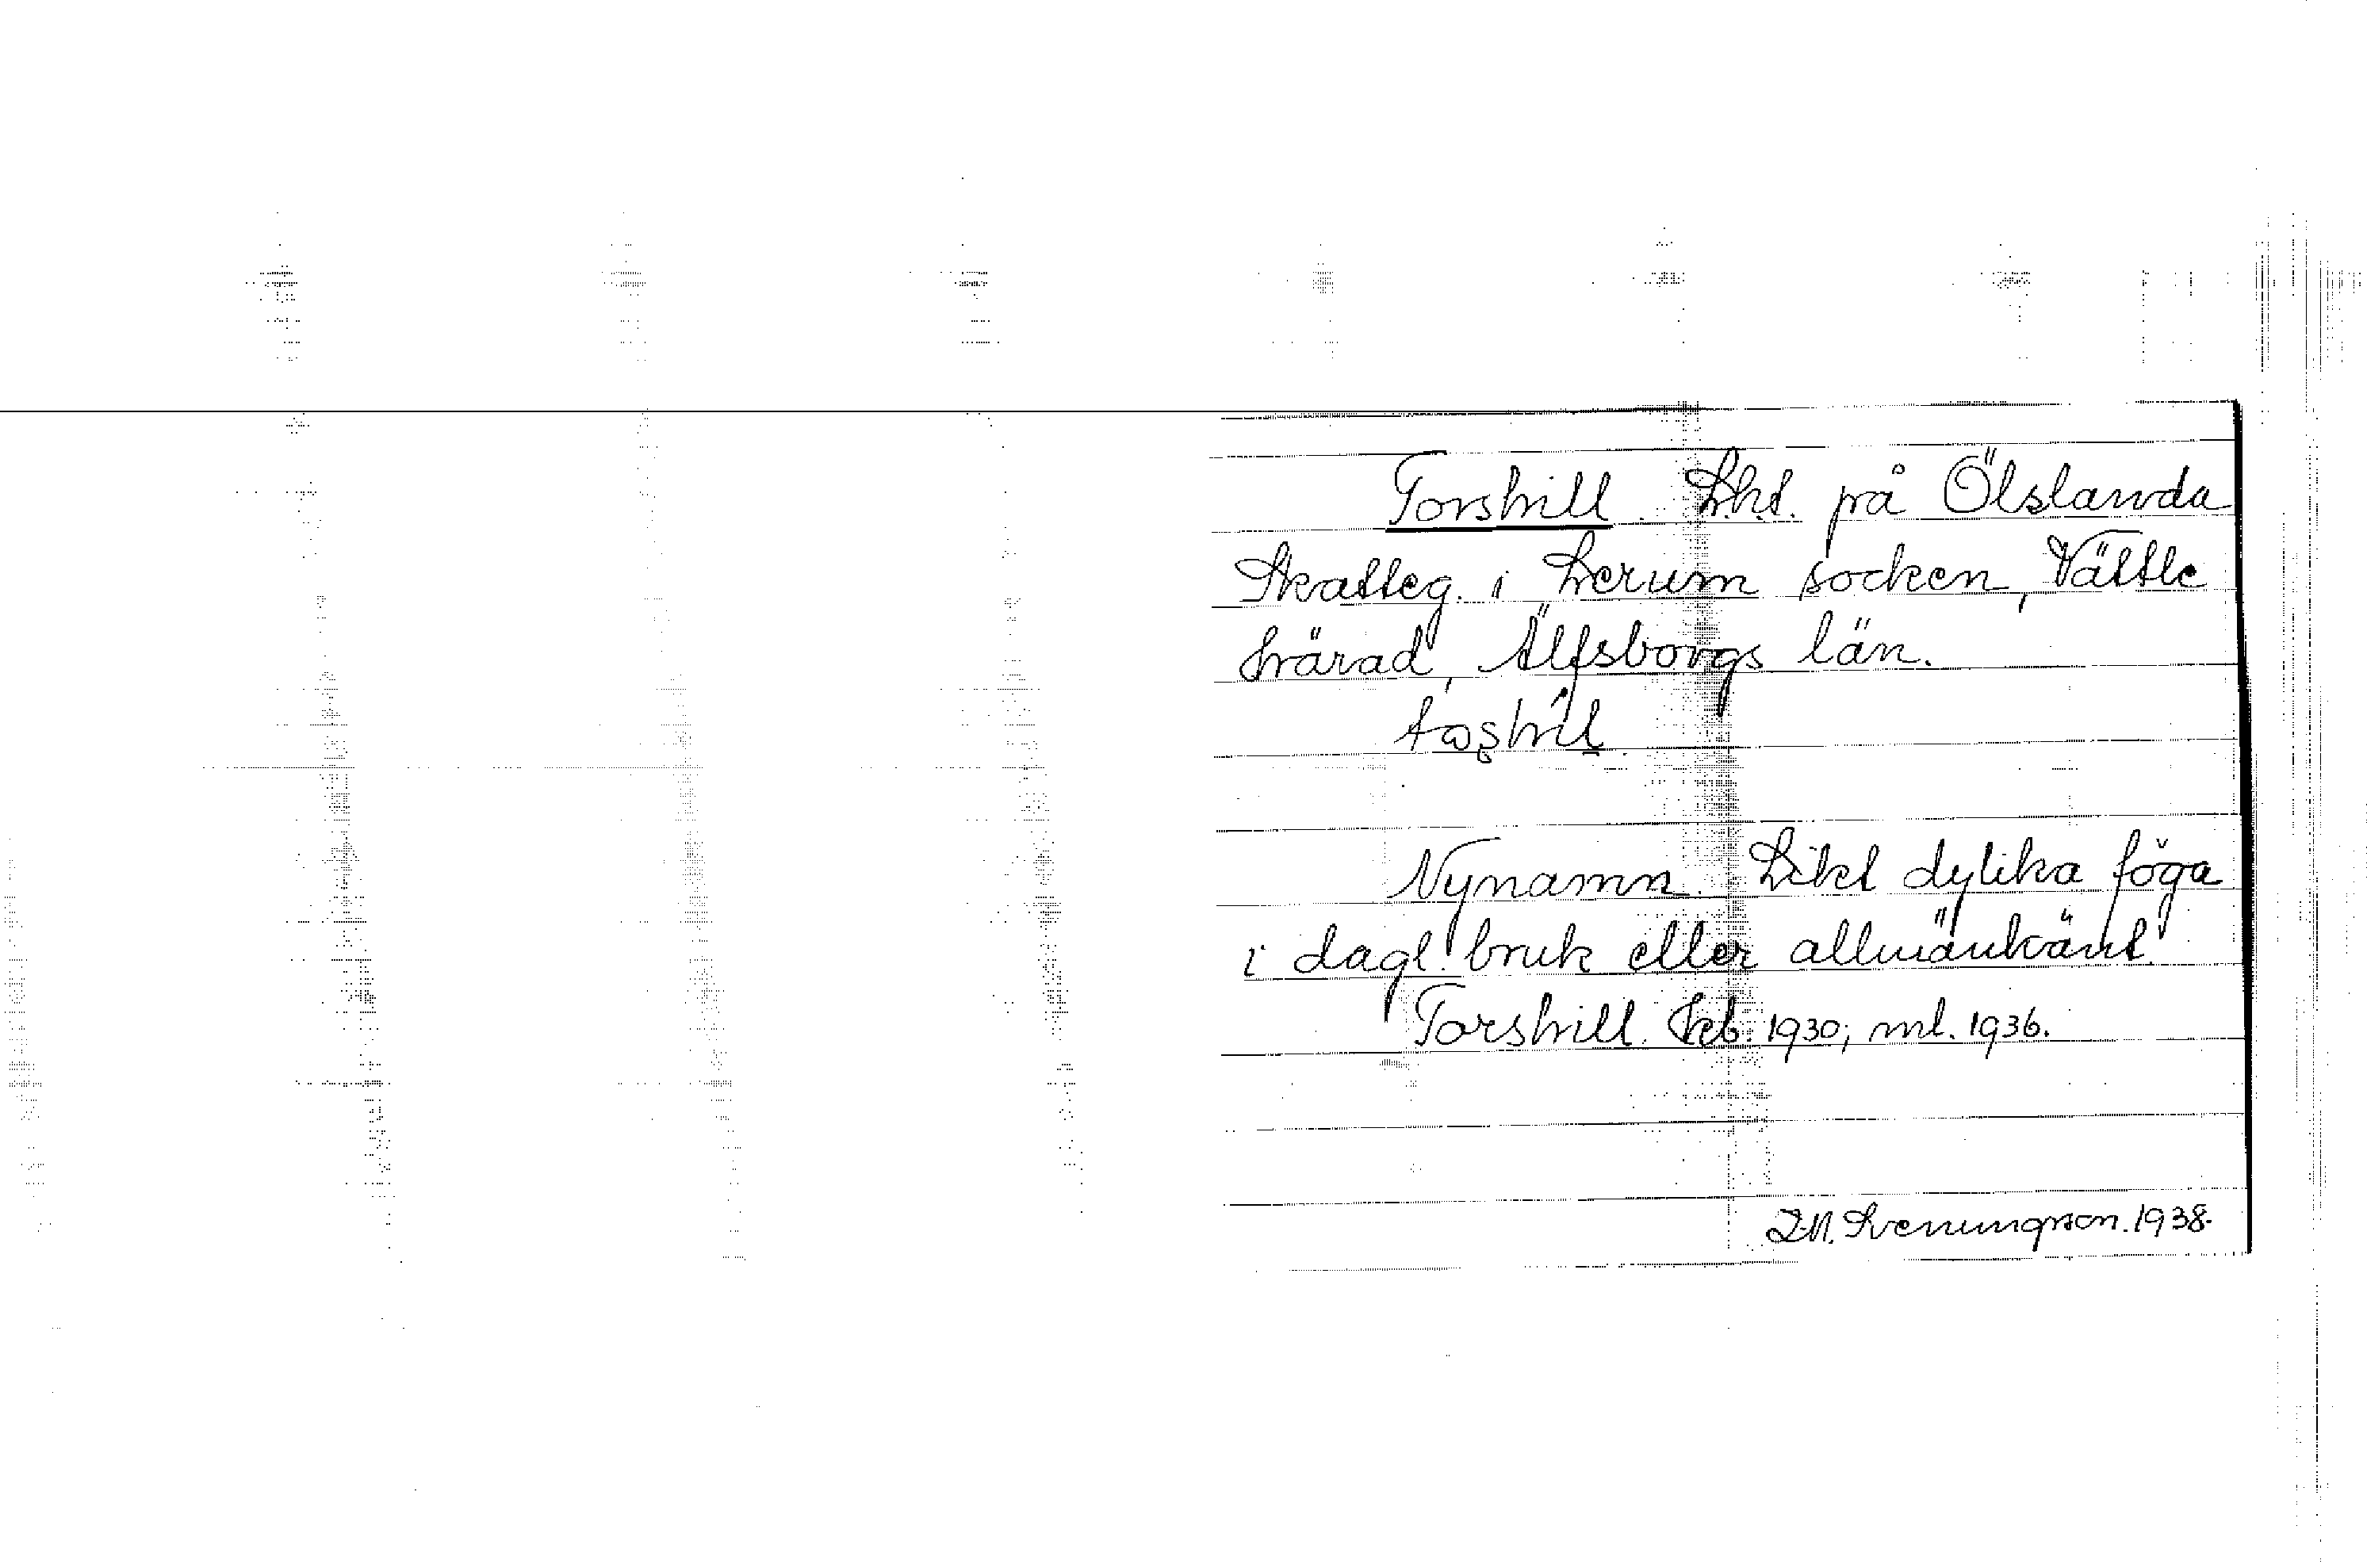 Torshill. Lht. på Ölslanda
Skatteg. i Lerum socken, Vättle
härad, Älfsborgs län.
Nynamn. Likt dylika föga
i dagl. bruk eller allmänkänt.
Torshill. Jeb. 1930; ml. 1936.
Svenungson. 1938.